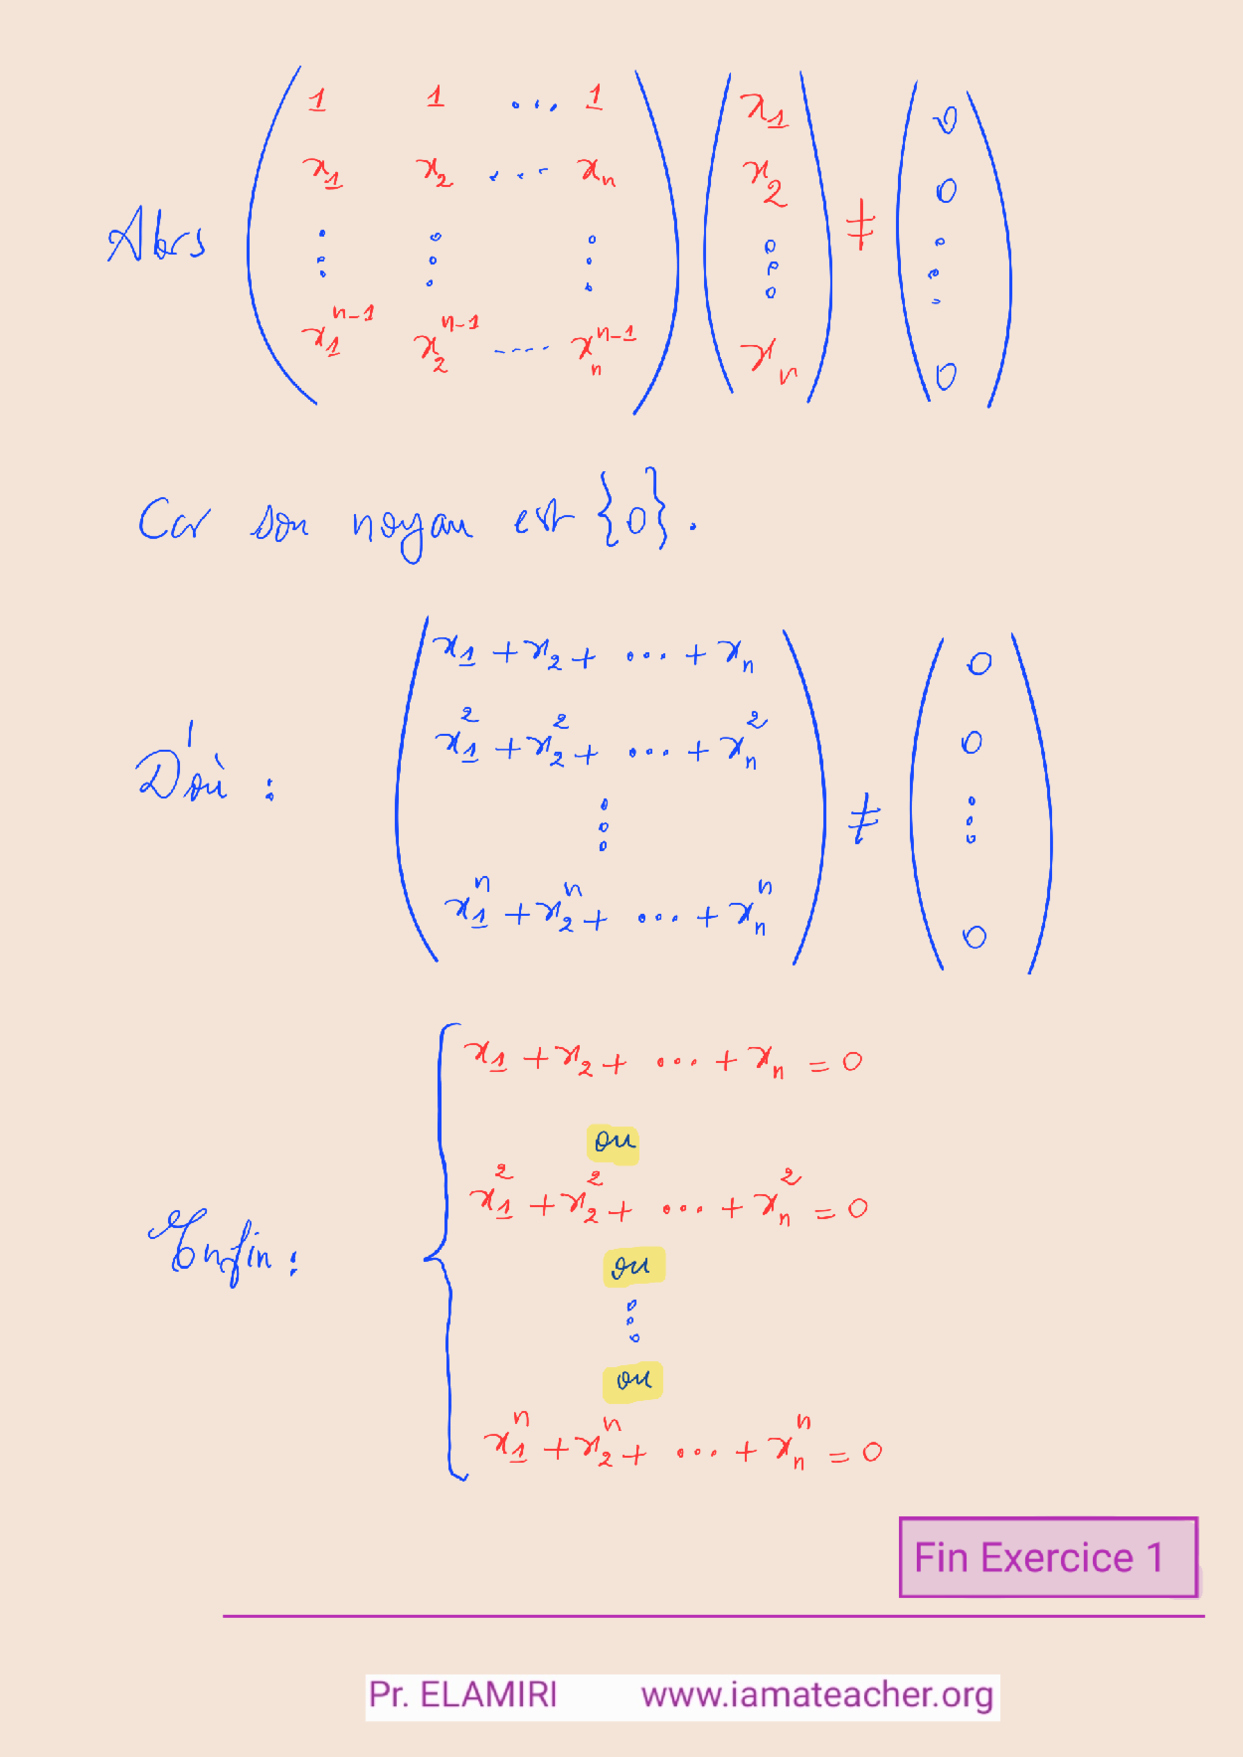 Alors $\begin{pmatrix} 1 & 1 & \cdots & 1 \\ x_1 & x_2 & \cdots & x_n \\ \vdots & \vdots & & \vdots \\ x_1^{n-1} & x_2^{n-1} & \cdots & x_n^{n-1} \end{pmatrix} \begin{pmatrix} x_1 \\ x_2 \\ \vdots \\ x_n \end{pmatrix} \neq \begin{pmatrix} 0 \\ 0 \\ \vdots \\ 0 \end{pmatrix}$
Car son noyau est {0}.
D'où : $\begin{pmatrix} x_1 + x_2 + \cdots + x_n \\ x_1^2 + x_2^2 + \cdots + x_n^2 \\ \vdots \\ x_1^n + x_2^n + \cdots + x_n^n \end{pmatrix} \neq \begin{pmatrix} 0 \\ 0 \\ \vdots \\ 0 \end{pmatrix}$
Enfin :
x_1 + x_2 + ... + x_n = 0
ou
x_1^2 + x_2^2 + ... + x_n^2 = 0
ou
⋮
ou
x_1^n + x_2^n + ... + x_n^n = 0
Fin Exercice 1
Pr. ELAMIRI www.iamateacher.org